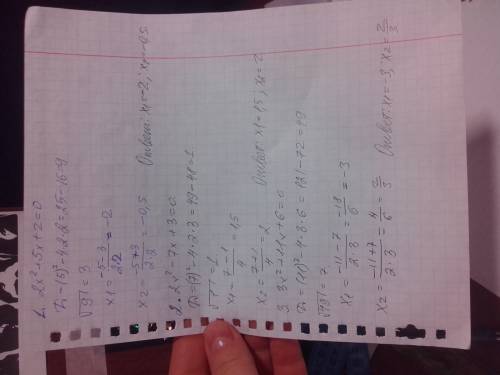 1. 2x²+5x+2=0
D=(5)²-4·2·2=25-16=9
√9=3
x1=-5-3/2·2=-2
x2=-5+3/2·2=-0,5 Ответ: x1=-2; x2=-0,5
2. 2x²-7x+3=0
D=(7)²-4·2·3=49-48=1
√1=1
x1=7-1/4=1,5
x2=7+1/4=2 Ответ: x1=1,5; x2=2
3. 3x²+11x+6=0
D=(11)²-4·3·6=121-72=49
√49=7
x1=-11-7/2·3=-18/6=-3
x2=-11+7/2·3=4/6=2/3 Ответ: x1=-3; x2=2/3